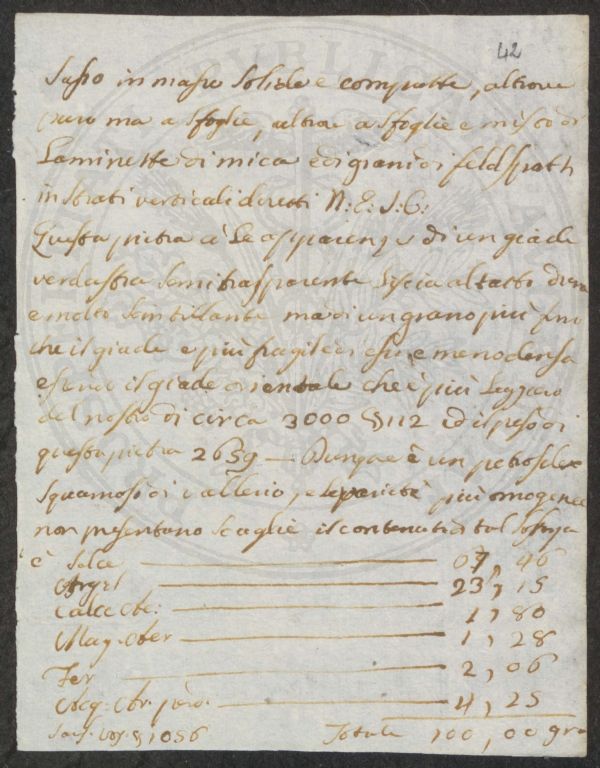 42
Sasso in masse solide e compatte, altrove
puro ma a sfoglie, altrove a sfoglie e misto di
Laminette di mica e di grani di feldspath
in strati verticali diretti N: E: S: O:
Questa pietra à le apparenze di un giade
verdastra semitrasparente liscia al tatto dura
e molto scintillante ma di un grano più fino
che il giade e più fragile di esso e meno densa
essendo il giade orientale che è più leggiero
del nostro di circa 3000 § 112 ed il peso di
questa pietra 2659 — Dunque è un petroselex
squamoso di Vallerio, e le varietà più omogenee
non presentano scaglie il contenuto di tal
è Selce — 67, 46
Argil — 23, 15
Calce — 1, 80
Mag. — 1, 28
Fer — 2, 06
Acq. — 4, 25
Sauss. Voy. § 1056 Totale 100, 00 gra